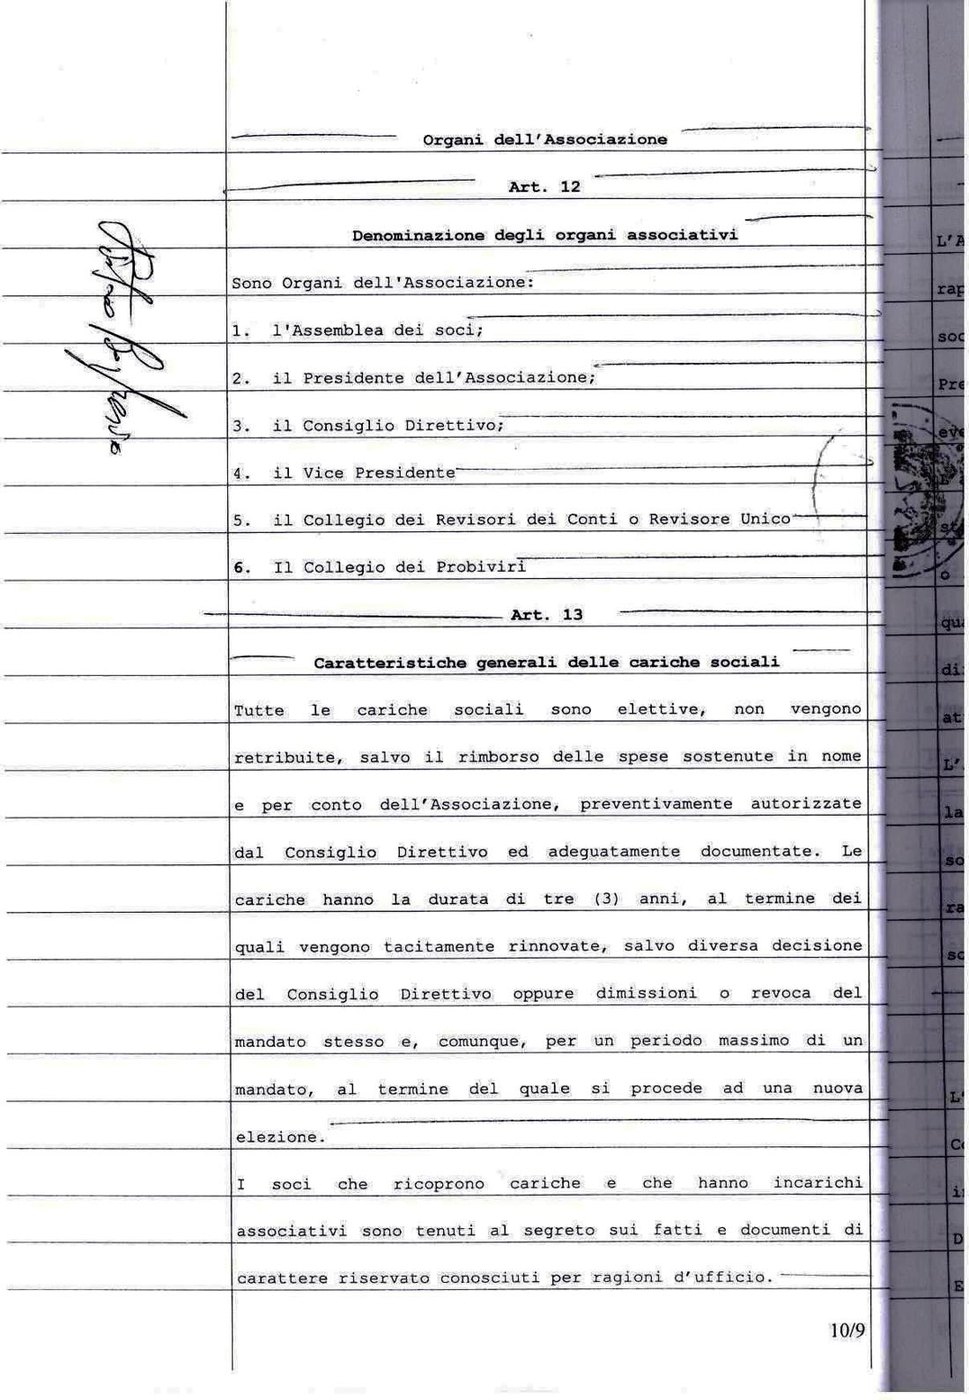 Organi dell'Associazione
Art. 12
Denominazione degli organi associativi
Sono Organi dell'Associazione:
1. l'Assemblea dei soci;
2. il Presidente dell'Associazione;
3. il Consiglio Direttivo;
4. il Vice Presidente
5. il Collegio dei Revisori dei Conti o Revisore Unico
6. Il Collegio dei Probiviri
Art. 13
Caratteristiche generali delle cariche sociali
Tutte le cariche sociali sono elettive, non vengono
retribuite, salvo il rimborso delle spese sostenute in nome
e per conto dell'Associazione, preventivamente autorizzate
dal Consiglio Direttivo ed adeguatamente documentate. Le
cariche hanno la durata di tre (3) anni, al termine dei
quali vengono tacitamente rinnovate, salvo diversa decisione
del Consiglio Direttivo oppure dimissioni o revoca del
mandato stesso e, comunque, per un periodo massimo di un
mandato, al termine del quale si procede ad una nuova
elezione.
I soci che ricoprono cariche e che hanno incarichi
associativi sono tenuti al segreto sui fatti e documenti di
carattere riservato conosciuti per ragioni d'ufficio.
10/9